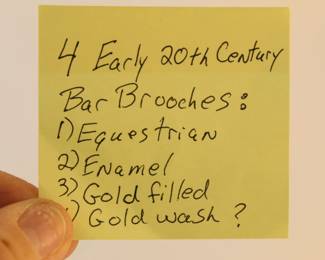 4 Early 20th Century
Bar Brooches:
1) Equestrian
2) Enamel
3) Gold filled
) Gold wash ?